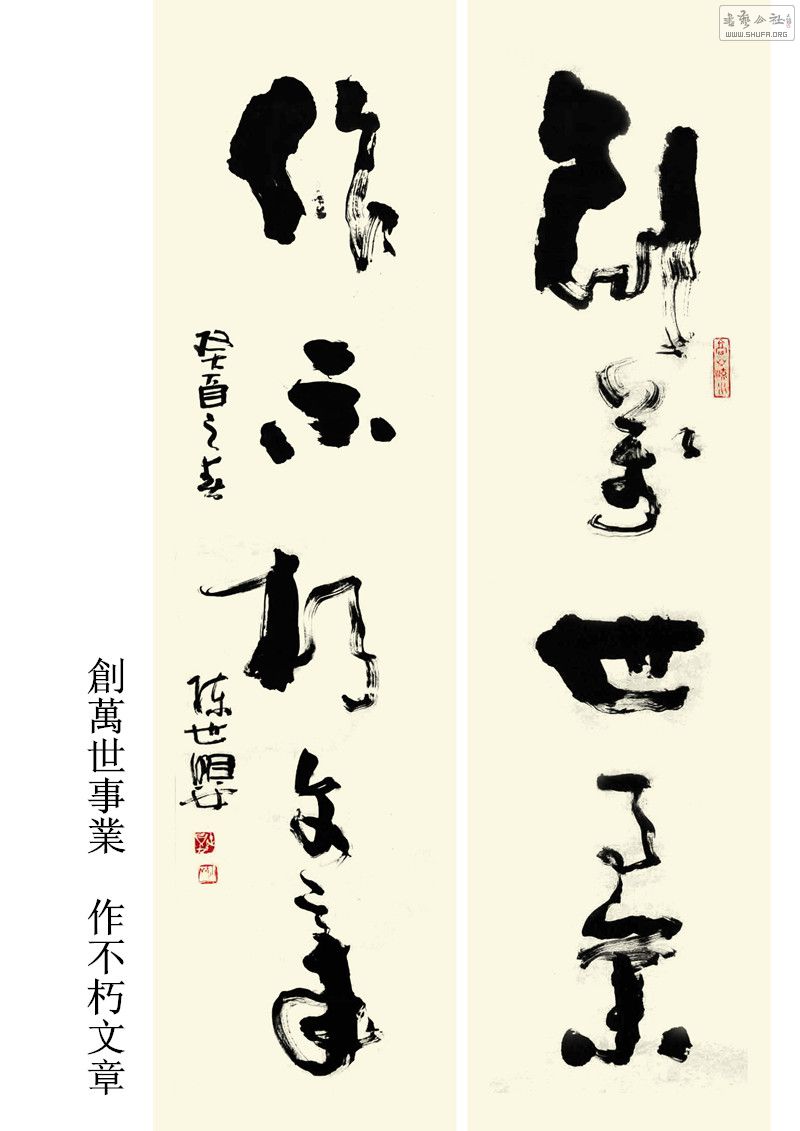 創萬世事業
作不朽文章
癸酉之春
陈世
創萬世事業 作不朽文章
书艺公社
WWW.SHUFA.ORG